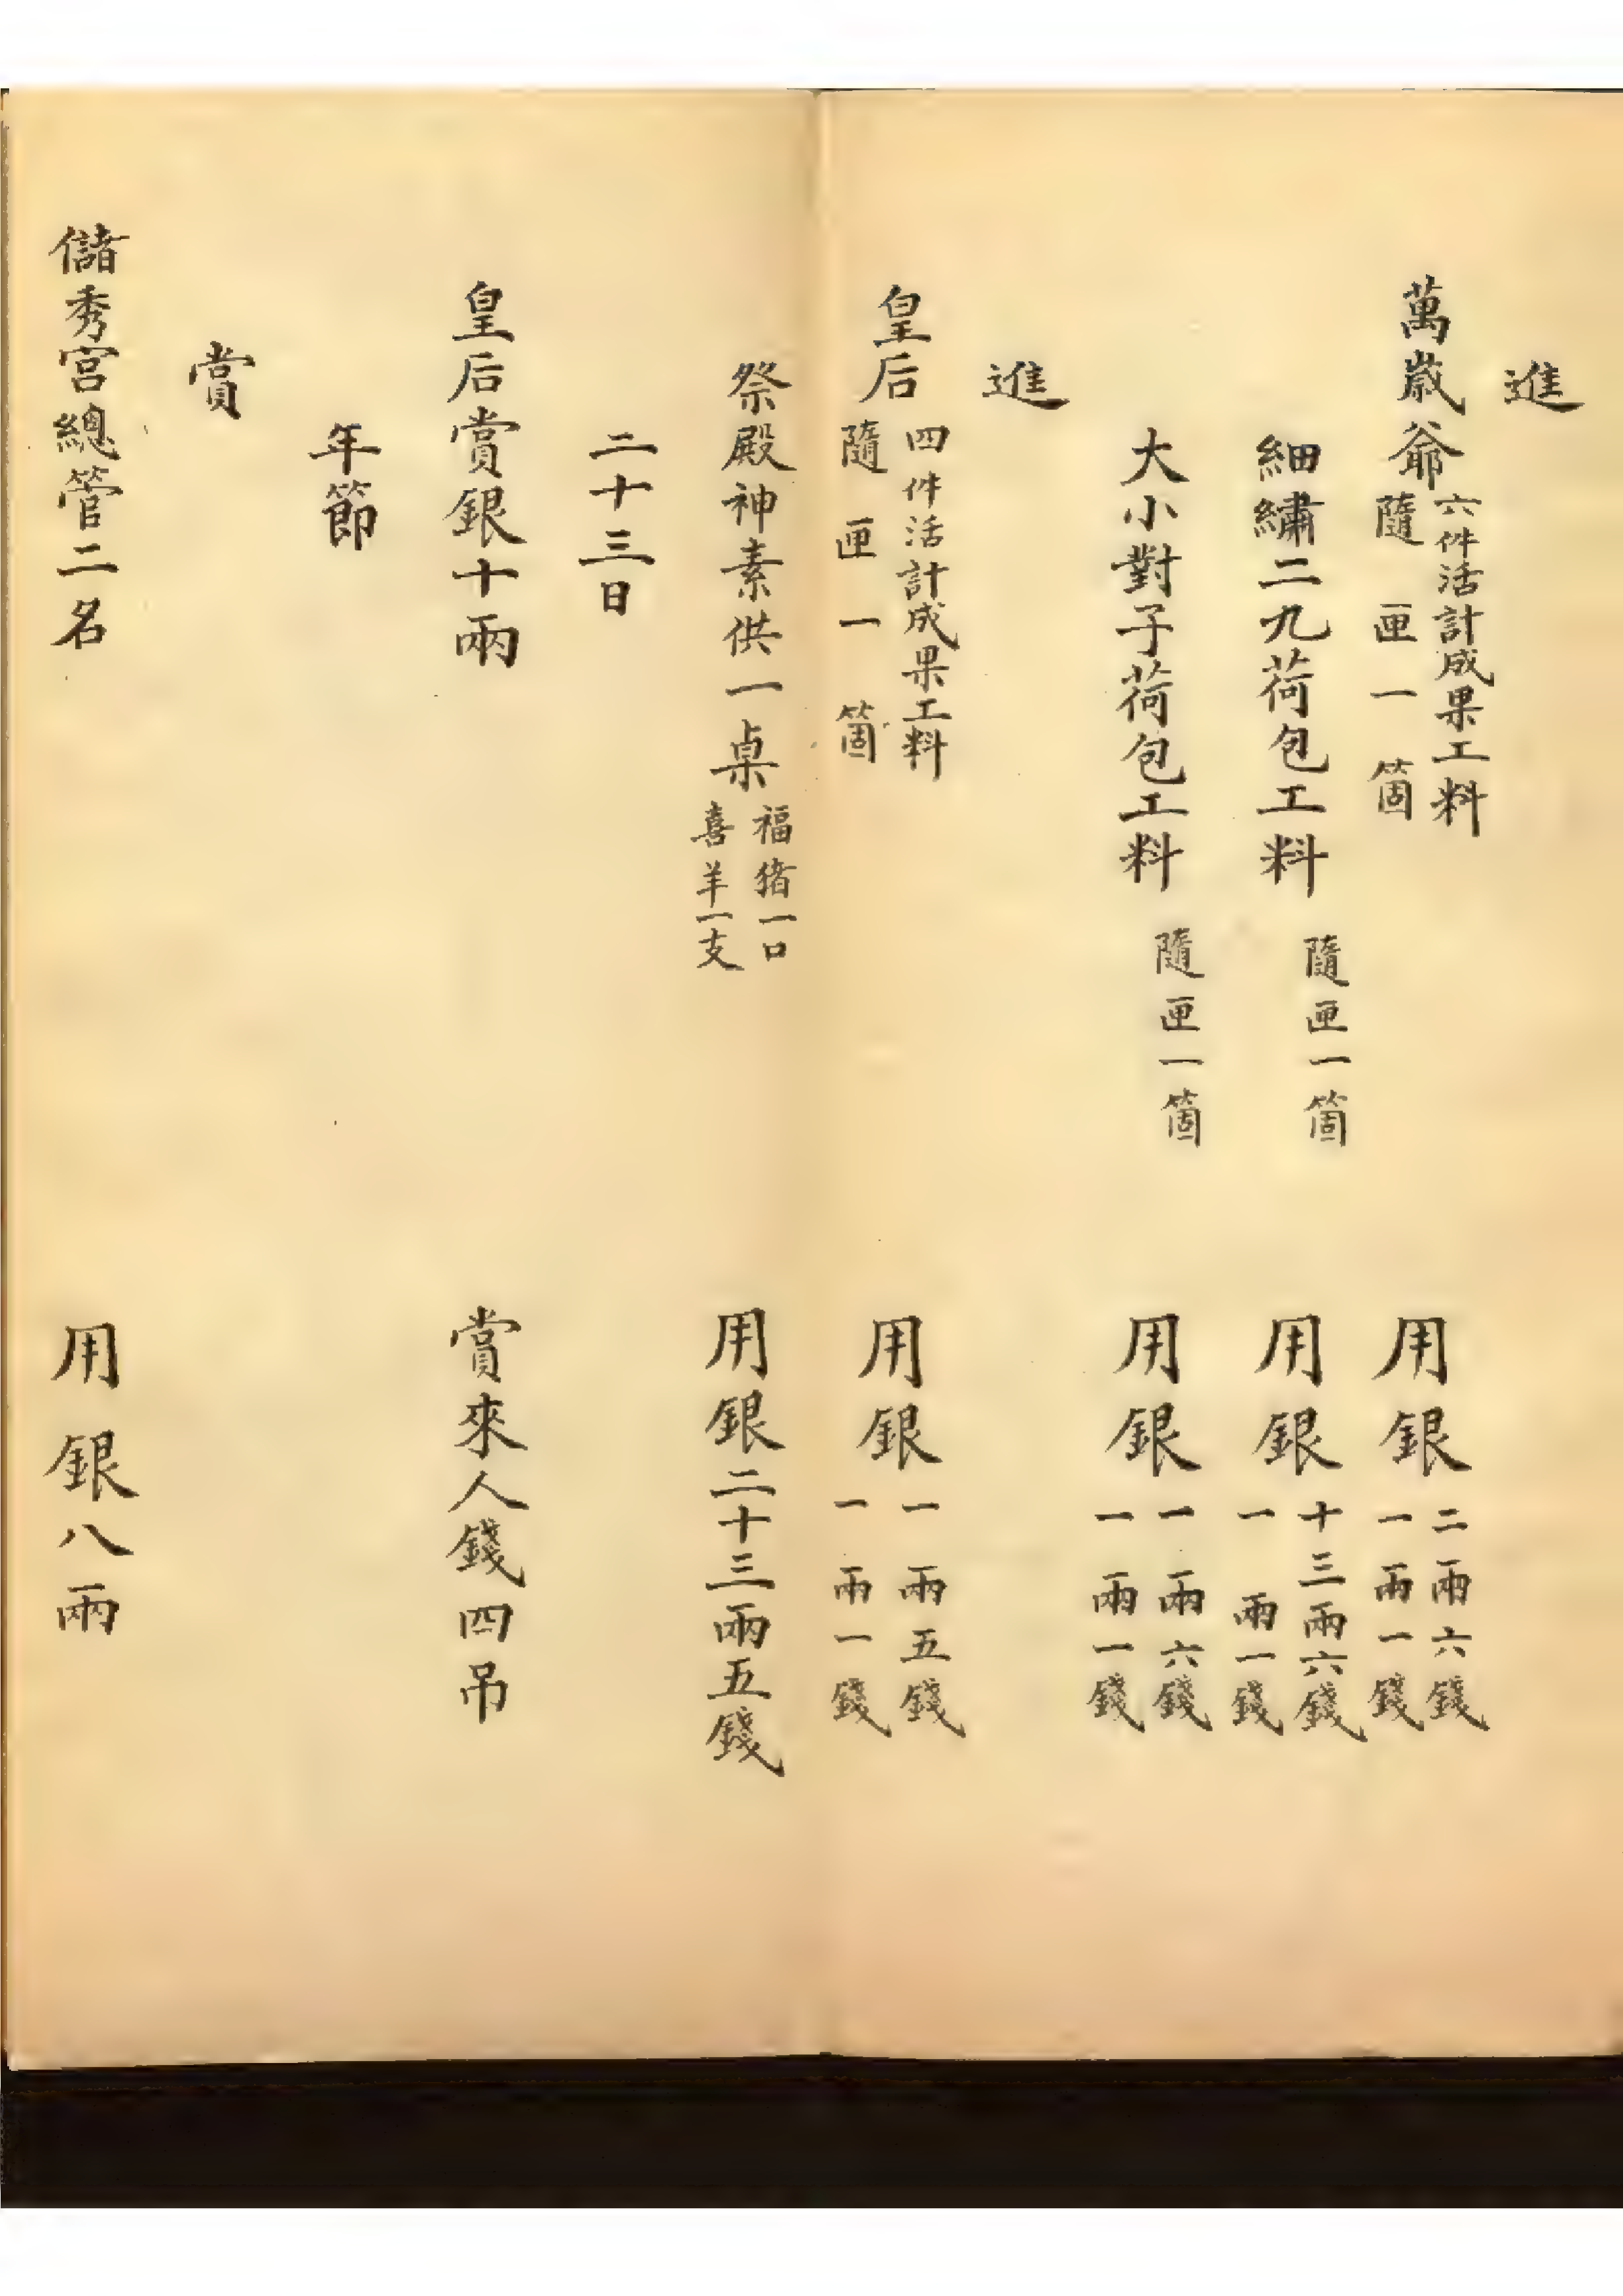 進
萬歲爺 六件活計成果工料 隨匣一箇 用銀 二兩六錢 一兩一錢
細繡二九荷包工料 隨匣一箇 用銀 十三兩六錢 一兩一錢
大小對子荷包工料 隨匣一箇 用銀 一兩六錢 一兩一錢
進
皇后 四件活計成果工料 隨匣一箇 用銀 一兩五錢 一兩一錢
祭殿神素供一桌 福猪一口 喜羊一支 用銀二十三兩五錢
二十三日
皇后賞銀十兩 賞來人錢四吊
年節
賞
儲秀宮總管二名 用銀八兩